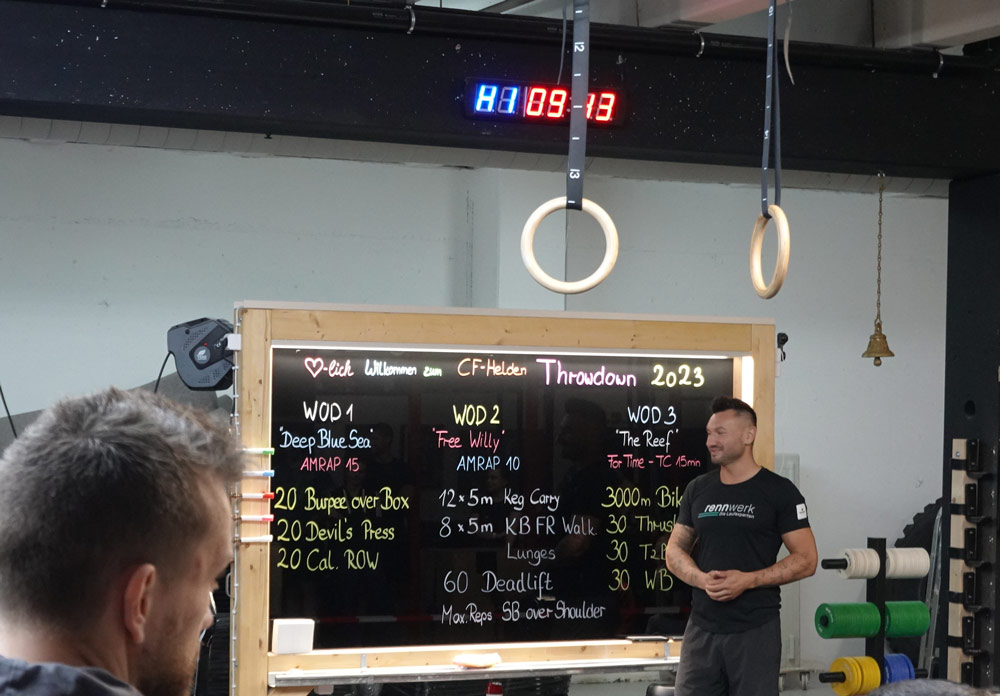 H1 09:13
12
13
♡-lich Willkommen zum CF-Helden Throwdown 2023
WOD 1
"Deep Blue Sea"
AMRAP 15
20 Burpee over Box
20 Devil's Press
20 Cal. ROW
WOD 2
"Free Willy"
AMRAP 10
12 x 5m Keg Carry
8 x 5m KB FR Walk.
Lunges
60 Deadlift
Max. Reps SB over Shoulder
WOD 3
"The Reef"
For Time - TC 15min
3000m Bik
30 Thrus
30 T2B
30 WB
rennwerk
Die Laufexperten